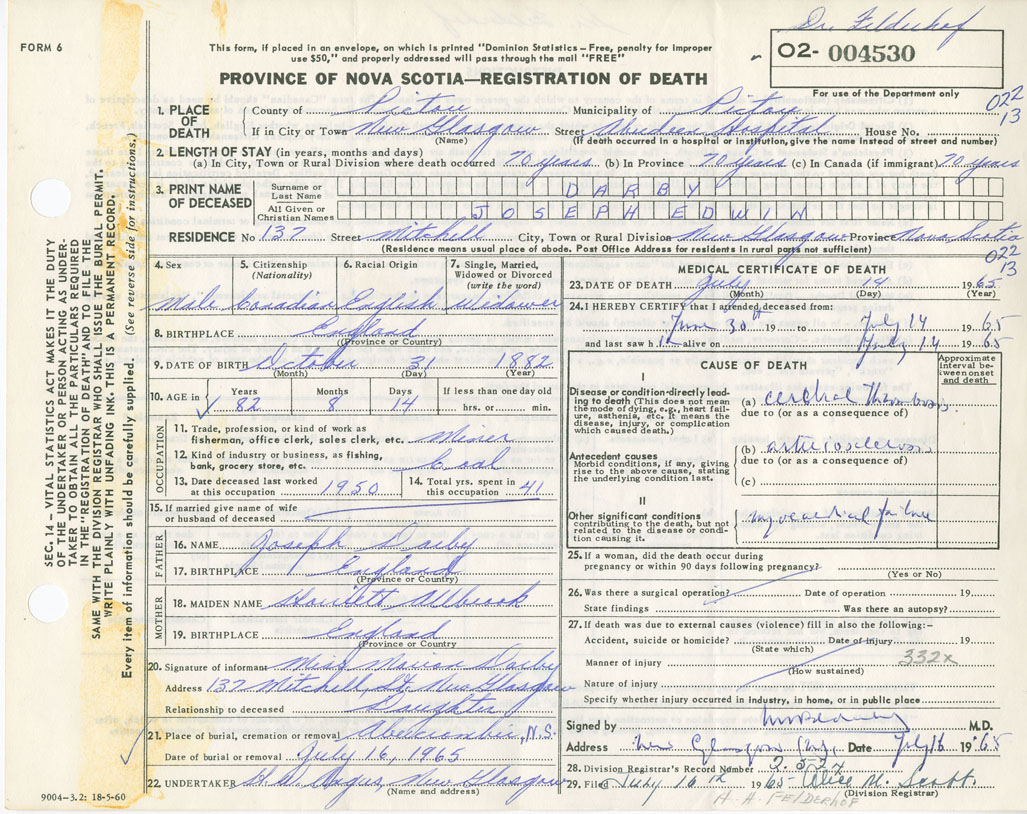 Dr. Felderhof
FORM 6
This form, if placed in an envelope, on which is printed "Dominion Statistics—Free, penalty for improper
use $50," and properly addressed will pass through the mail "FREE"
02- 004530
PROVINCE OF NOVA SCOTIA—REGISTRATION OF DEATH
For use of the Department only
022
13
1. PLACE OF DEATH County of Pictou Municipality of Pictou
If in City or Town New Glasgow Street Aberdeen Hospital House No.
(Name) (If death occurred in a hospital or institution, give the name instead of street and number)
2. LENGTH OF STAY (in years, months and days)
(a) In City, Town or Rural Division where death occurred 70 years (b) In Province 70 years (c) In Canada (if immigrant) 70 years
3. PRINT NAME OF DECEASED Surname or Last Name DARBY
All Given or Christian Names JOSEPH EDWIN
RESIDENCE No 137 Street Mitchell City, Town or Rural Division New Glasgow Province Nova Scotia
(Residence means usual place of abode. Post Office Address for residents in rural parts not sufficient)
022
13
4. Sex Male
5. Citizenship (Nationality) Canadian
6. Racial Origin English
7. Single, Married, Widowed or Divorced (write the word) Widower
8. BIRTHPLACE England
(Province or Country)
9. DATE OF BIRTH October 31 1882
(Month) (Day) (Year)
10. AGE in Years 82 Months 8 Days 14 If less than one day old
hrs. or min.
OCCUPATION
11. Trade, profession, or kind of work as
fisherman, office clerk, sales clerk, etc. Miner
12. Kind of industry or business, as fishing,
bank, grocery store, etc. Coal
13. Date deceased last worked at this occupation 1950
14. Total yrs. spent in this occupation 41
15. If married give name of wife
or husband of deceased
FATHER
16. NAME Joseph Darby
17. BIRTHPLACE England
(Province or Country)
MOTHER
18. MAIDEN NAME
19. BIRTHPLACE England
(Province or Country
20. Signature of informant Miss Marion Darby
Address 137 Mitchell St. New Glasgow
Relationship to deceased Daughter
21. Place of burial, cremation or removal Abercrombie, N.S.
Date of burial or removal July 16, 1965
22. UNDERTAKER H.W. Angus, New Glasgow
(Name and address)
9004-3.2: 18-5-60
MEDICAL CERTIFICATE OF DEATH
23. DATE OF DEATH July 14 1965
(Month) (Day) (Year)
24. I HEREBY CERTIFY that I attended deceased from:
June 30th 19 to July 14 1965
and last saw him alive on July 14 1965
CAUSE OF DEATH
Approximate interval between onset and death
I
Disease or condition directly leading to death (This does not mean the mode of dying, e.g., heart failure, asthenia, etc. It means the disease, injury, or complication which caused death.)
(a) cerebral thrombosis
due to (or as a consequence of)
Antecedent causes
Morbid conditions, if any, giving rise to the above cause, stating the underlying condition last.
(b) arteriosclerosis
due to (or as a consequence of)
(c)
II
Other significant conditions
contributing to the death, but not related to the disease or condition causing it.
myocardial failure
25. If a woman, did the death occur during
pregnancy or within 90 days following pregnancy?
(Yes or No)
26. Was there a surgical operation? Date of operation 19
State findings Was there an autopsy?
27. If death was due to external causes (violence) fill in also the following:—
Accident, suicide or homicide? Date of injury 19
(State which)
Manner of injury 332x
(How sustained)
Nature of injury
Specify whether injury occurred in industry, in home, or in public place
Signed by M.D.
Address New Glasgow Date July 16 1965
28. Division Registrar's Record Number
29. Filed July 16th 1965 Alice M. Scott
(Division Registrar)
H. H. FELDERHOF
SEC. 14 – VITAL STATISTICS ACT MAKES IT THE DUTY
OF THE UNDERTAKER OR PERSON ACTING AS UNDER-
TAKER TO OBTAIN ALL THE PARTICULARS REQUIRED
IN THE "REGISTRATION OF DEATH" AND TO FILE THE
SAME WITH THE DIVISION REGISTRAR WHO SHALL ISSUE THE BURIAL PERMIT.
WRITE PLAINLY WITH UNFADING INK. THIS IS A PERMANENT RECORD.
Every item of information should be carefully supplied. (See reverse side for instructions.)